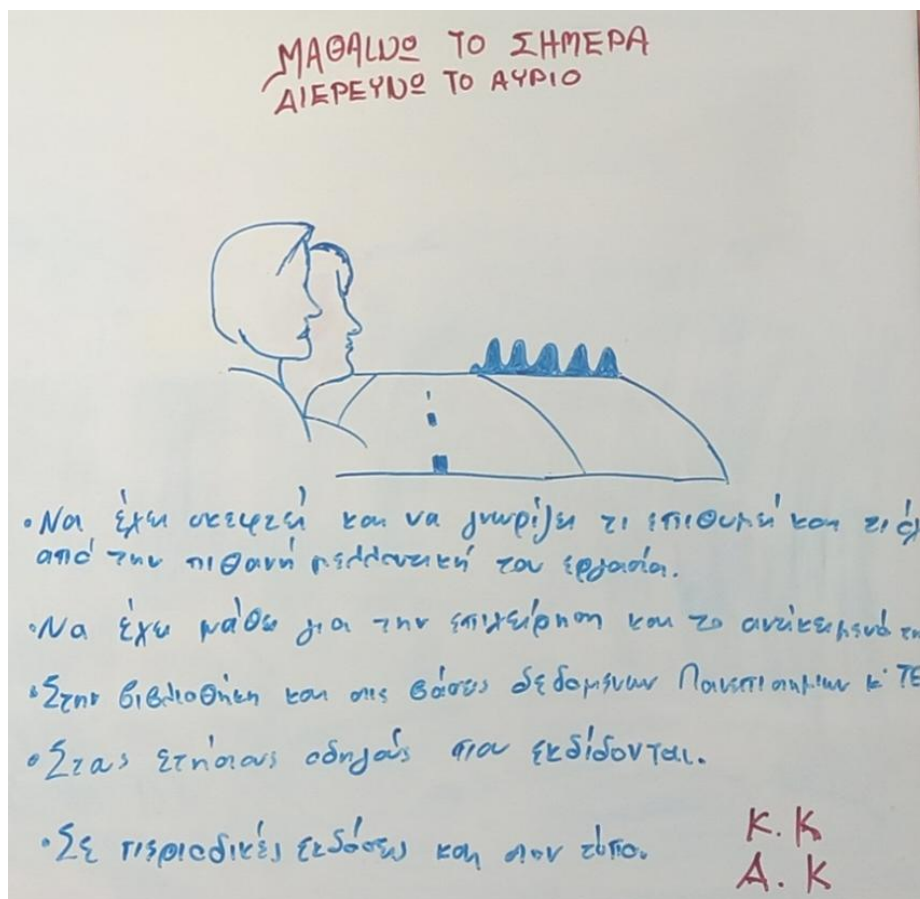 ΜΑΘΑΙΝΩ ΤΟ ΣΗΜΕΡΑ
ΔΙΕΡΕΥΝΩ ΤΟ ΑΥΡΙΟ
• Να έχει σκεφτεί και να γνωρίζει τι επιθυμεί και τι
από την πιθανή μελλοντική του εργασία.
• Να έχει μάθει για την επιχείρηση και το αντικείμενό
• Στην βιβλιοθήκη και στις βάσεις δεδομένων Πανεπιστημίων κ' ΤΕ
• Στους ετήσιους οδηγούς που εκδίδονται.
• Σε περιοδικές εκδόσεις και στον τύπο.
Κ. Κ
Α. Κ